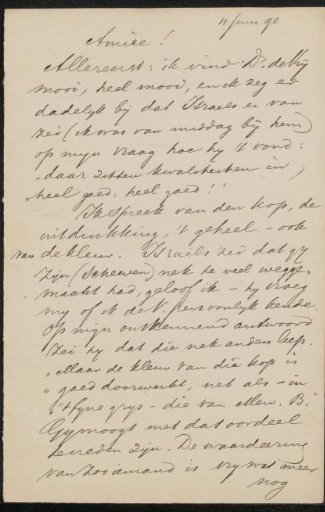 11 Juni 90
Amice!
Allereerst: ik vind Dr. de Vrij
mooi, heel mooi, en ik zeg er
dadelijk bij dat Israels er van
zei (ik was van middag bij hem)
op mijn vraag hoe hij 't vond:
"daar zitten kwaliteiten in,
heel goed, heel goed!"
Ik spreek van den kop, de
uitdrukking, 't geheel - ook
van de kleur. Israels zei dat gij
zijn (scheeven) nek te veel wegge-
maakt had, geloof ik - hij vroeg
mij of ik de V. persoonlijk kende.
Op mijn ontkennend antwoord
zei hij dat die nek anders liep.
"Maar de kleur van die kop is
"goed doorwerkt, net als - in
't fijne grijs - die van Mevr. B."
Gij moogt met dat oordeel
tevreden zijn. De waardeering
van zoo iemand is vrij wat meer
nog